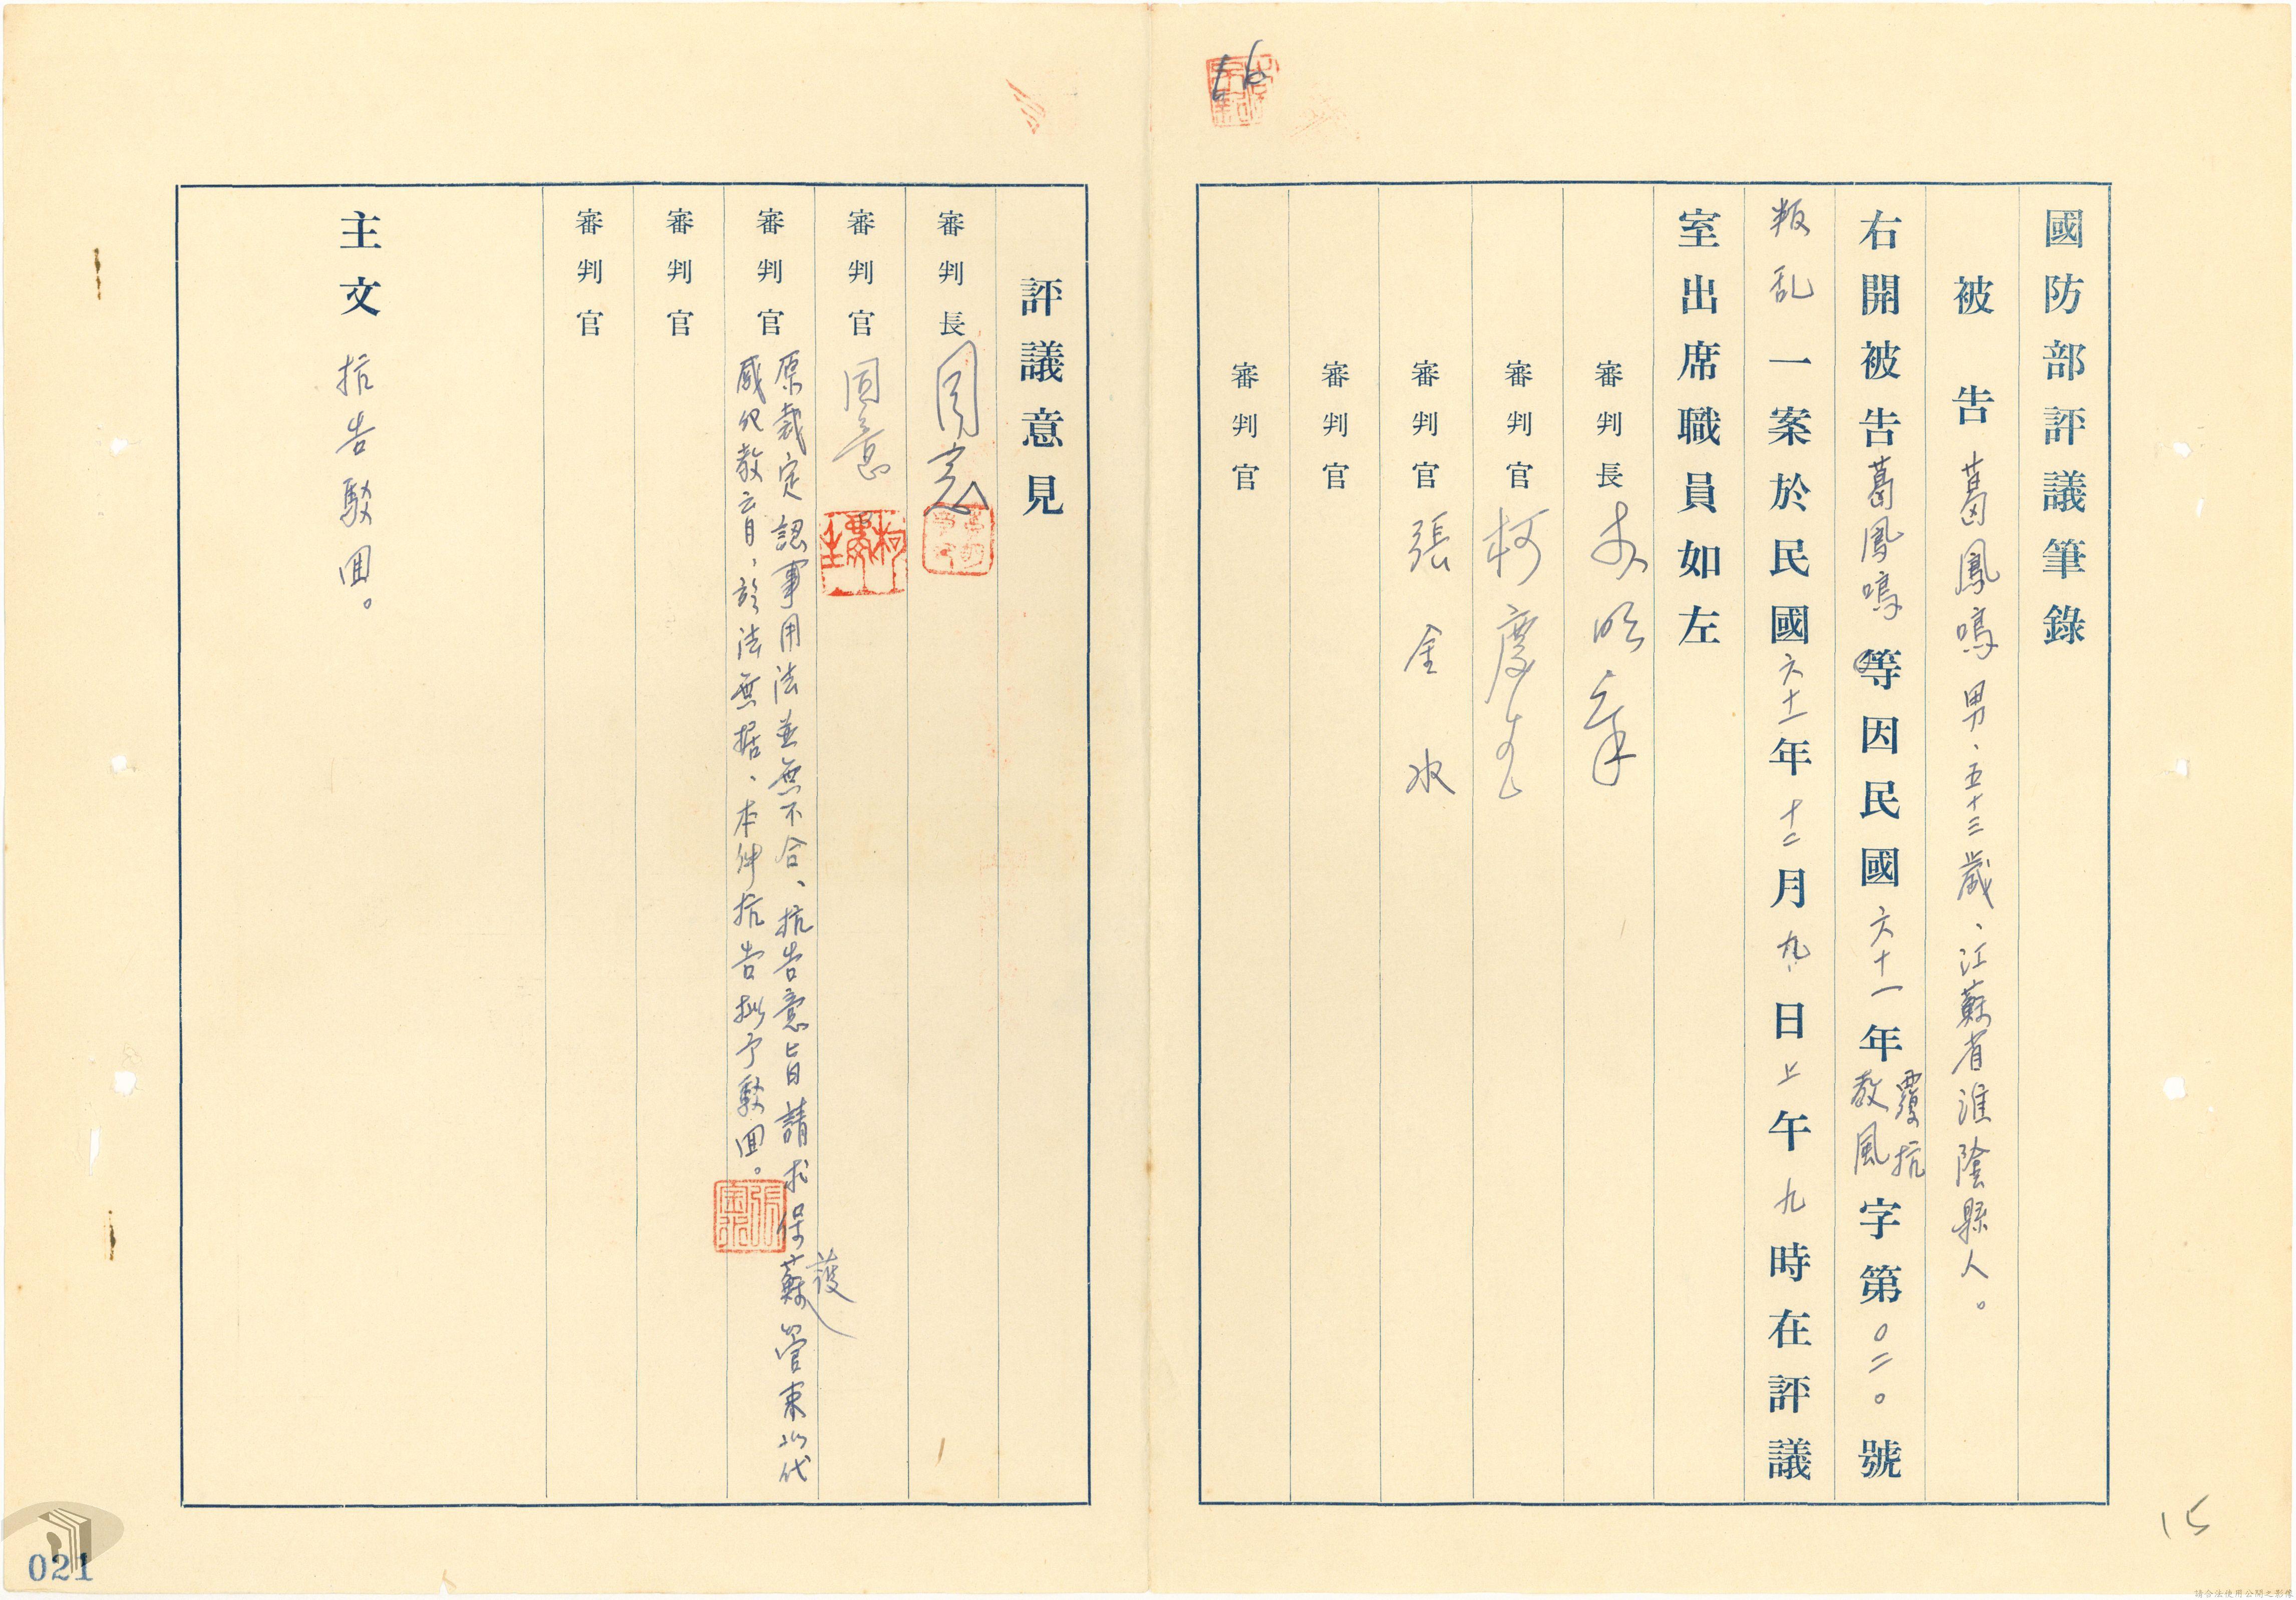 國防部評議筆錄
被告 葛鳳鳴 男、五十三歲、江蘇省淮陰縣人。
右開被告葛鳳鳴等因民國六十一年覆抗教風字第〇二〇號
叛乱一案於民國六十一年十二月九日上午九時在評議
室出席職員如左
審判長
審判官 柯慶生
審判官 張金水
審判官
審判官
16
15
評議意見
審判長 同意
審判官 同意
審判官 原裁定認事用法並無不合、抗告意旨請求保護管束以代
感化教育、於法無据、本件抗告擬予駁回。
審判官
審判官
主文 抗告駁回。
021
請合法使用公開之影像